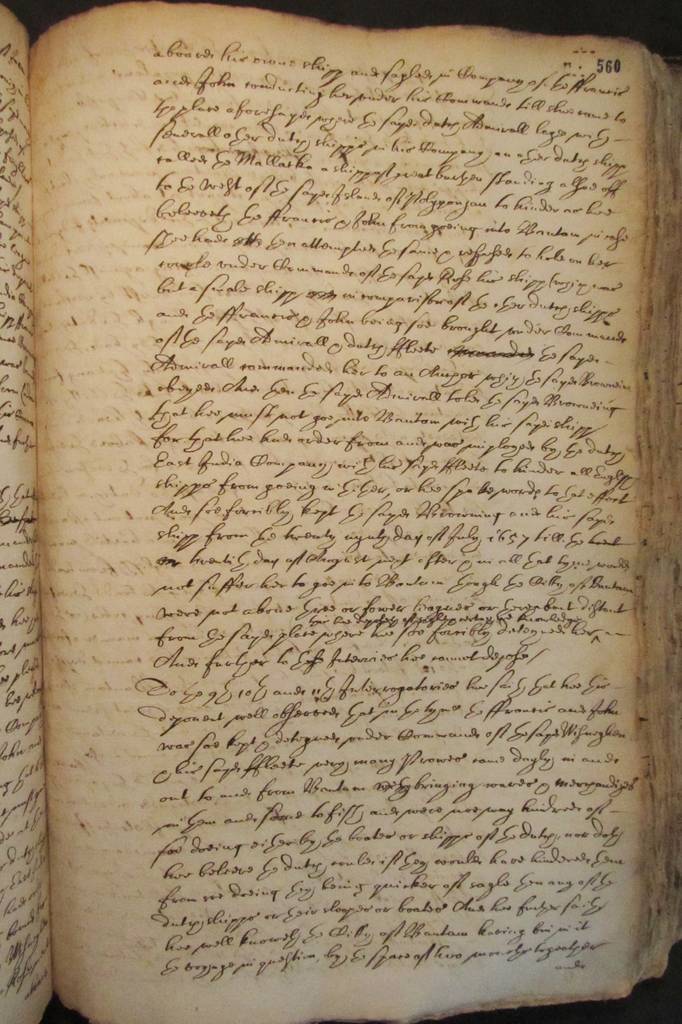 560
aboard his owne shipp and sayled in Company of the ffrancis
and John conducting her under his Command till shee came to
the place aforesayd where the sayd dutch Admirall laye with
severall other dutch shipps in his Company, an other dutch shipp
called the Mallacka a shipp of great burthen standing alsoe off
to the West of the sayd Island of to hinder as hee
beleeveth the ffrancis & John from goeing into Bantam in case
shee had then attempted the same & refused to
under Command of the sayd his shipp which was
but a small shipp in comparison of the other dutch shipps
and the ffrancis & John being soe brought under Command
of the sayd Admirall & dutch ffleete the sayd
Admirall commanded her to an Anchor which the sayd Browning
obeyed And then the sayd Admirall told the sayd Browning
that hee must not goe into Bantam with his sayd shipp
for that hee had order from and was imployed by the dutch
East India Company with his sayd ffleete to hinder all English
shipps from goeing thither, or hee spake words to that effect
And soe forcibly kept the sayd Browning and his sayd
shipp from the twenty eighth day of July 1657 till the
twentith day of August next after & in all that tyme would
not suffer her to goe into Bantam though the Citty of Bantam
were not above three or fower leagues or thereabout distant
from the sayd place where hee soe forcibly deteyned her
And further to theis Interries hee cannot depose /
To the 9th 10th and 11th Interrogatories hee saith that hee this
deponent well observed that in the tyme the ffrancis and John
was soe kept & deteyned under Command of the sayd
& his sayd ffleete very many Prowes came dayly in and
out to and from Bantam bringing wares & merchandizes
in them and some to fish and were noe way hindred of
soe doeing either by the boates or shipps of the dutch, nor doth
hee beleeve the dutch could if they would have hindered them
from soe doeing they being quicker of sayle then any of the
dutch shipps or their sloopes or boates And hee further saith
hee well knoweth the Citty of Bantam having bin in it
the voyage in question, by the space of two moneths together
and